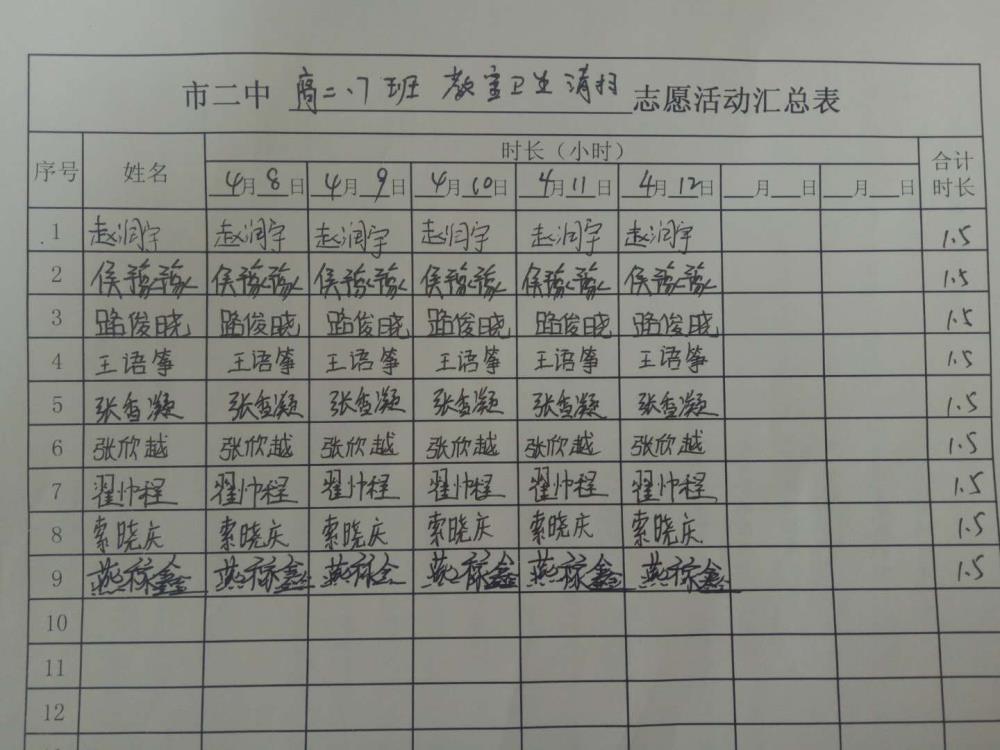 市二中 高二.7班 教室卫生清扫 志愿活动汇总表
序号 姓名 时长（小时） 合计时长
4月8日 4月9日 4月10日 4月11日 4月12日 月 日 月 日
1 赵润宇 赵润宇 赵润宇 赵润宇 赵润宇 赵润宇 1.5
2 侯豫豫 侯豫豫 侯豫豫 侯豫豫 侯豫豫 侯豫豫 1.5
3 路俊晓 路俊晓 路俊晓 路俊晓 路俊晓 路俊晓 1.5
4 王语筝 王语筝 王语筝 王语筝 王语筝 王语筝 1.5
5 张香凝 张香凝 张香凝 张香凝 张香凝 张香凝 1.5
6 张欣越 张欣越 张欣越 张欣越 张欣越 张欣越 1.5
7 翟帅程 翟帅程 翟帅程 翟帅程 翟帅程 翟帅程 1.5
8 索晓庆 索晓庆 索晓庆 索晓庆 索晓庆 索晓庆 1.5
9 1.5
10
11
12